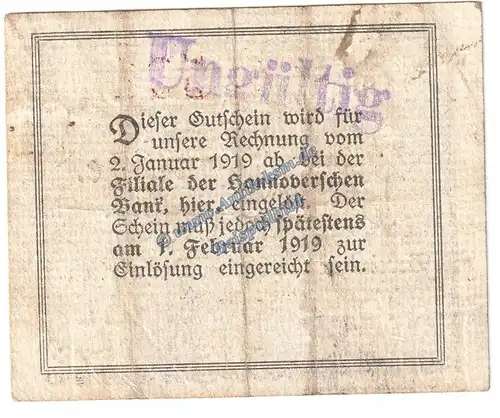 Ungültig
Dieser Gutschein wird für
unsere Rechnung vom
2. Januar 1919 ab bei der
Filiale der Hannoverschen
Bank, hier eingelöst. Der
Schein muß jedoch spätestens
am 1. Februar 1919 zur
Einlösung eingereicht sein.